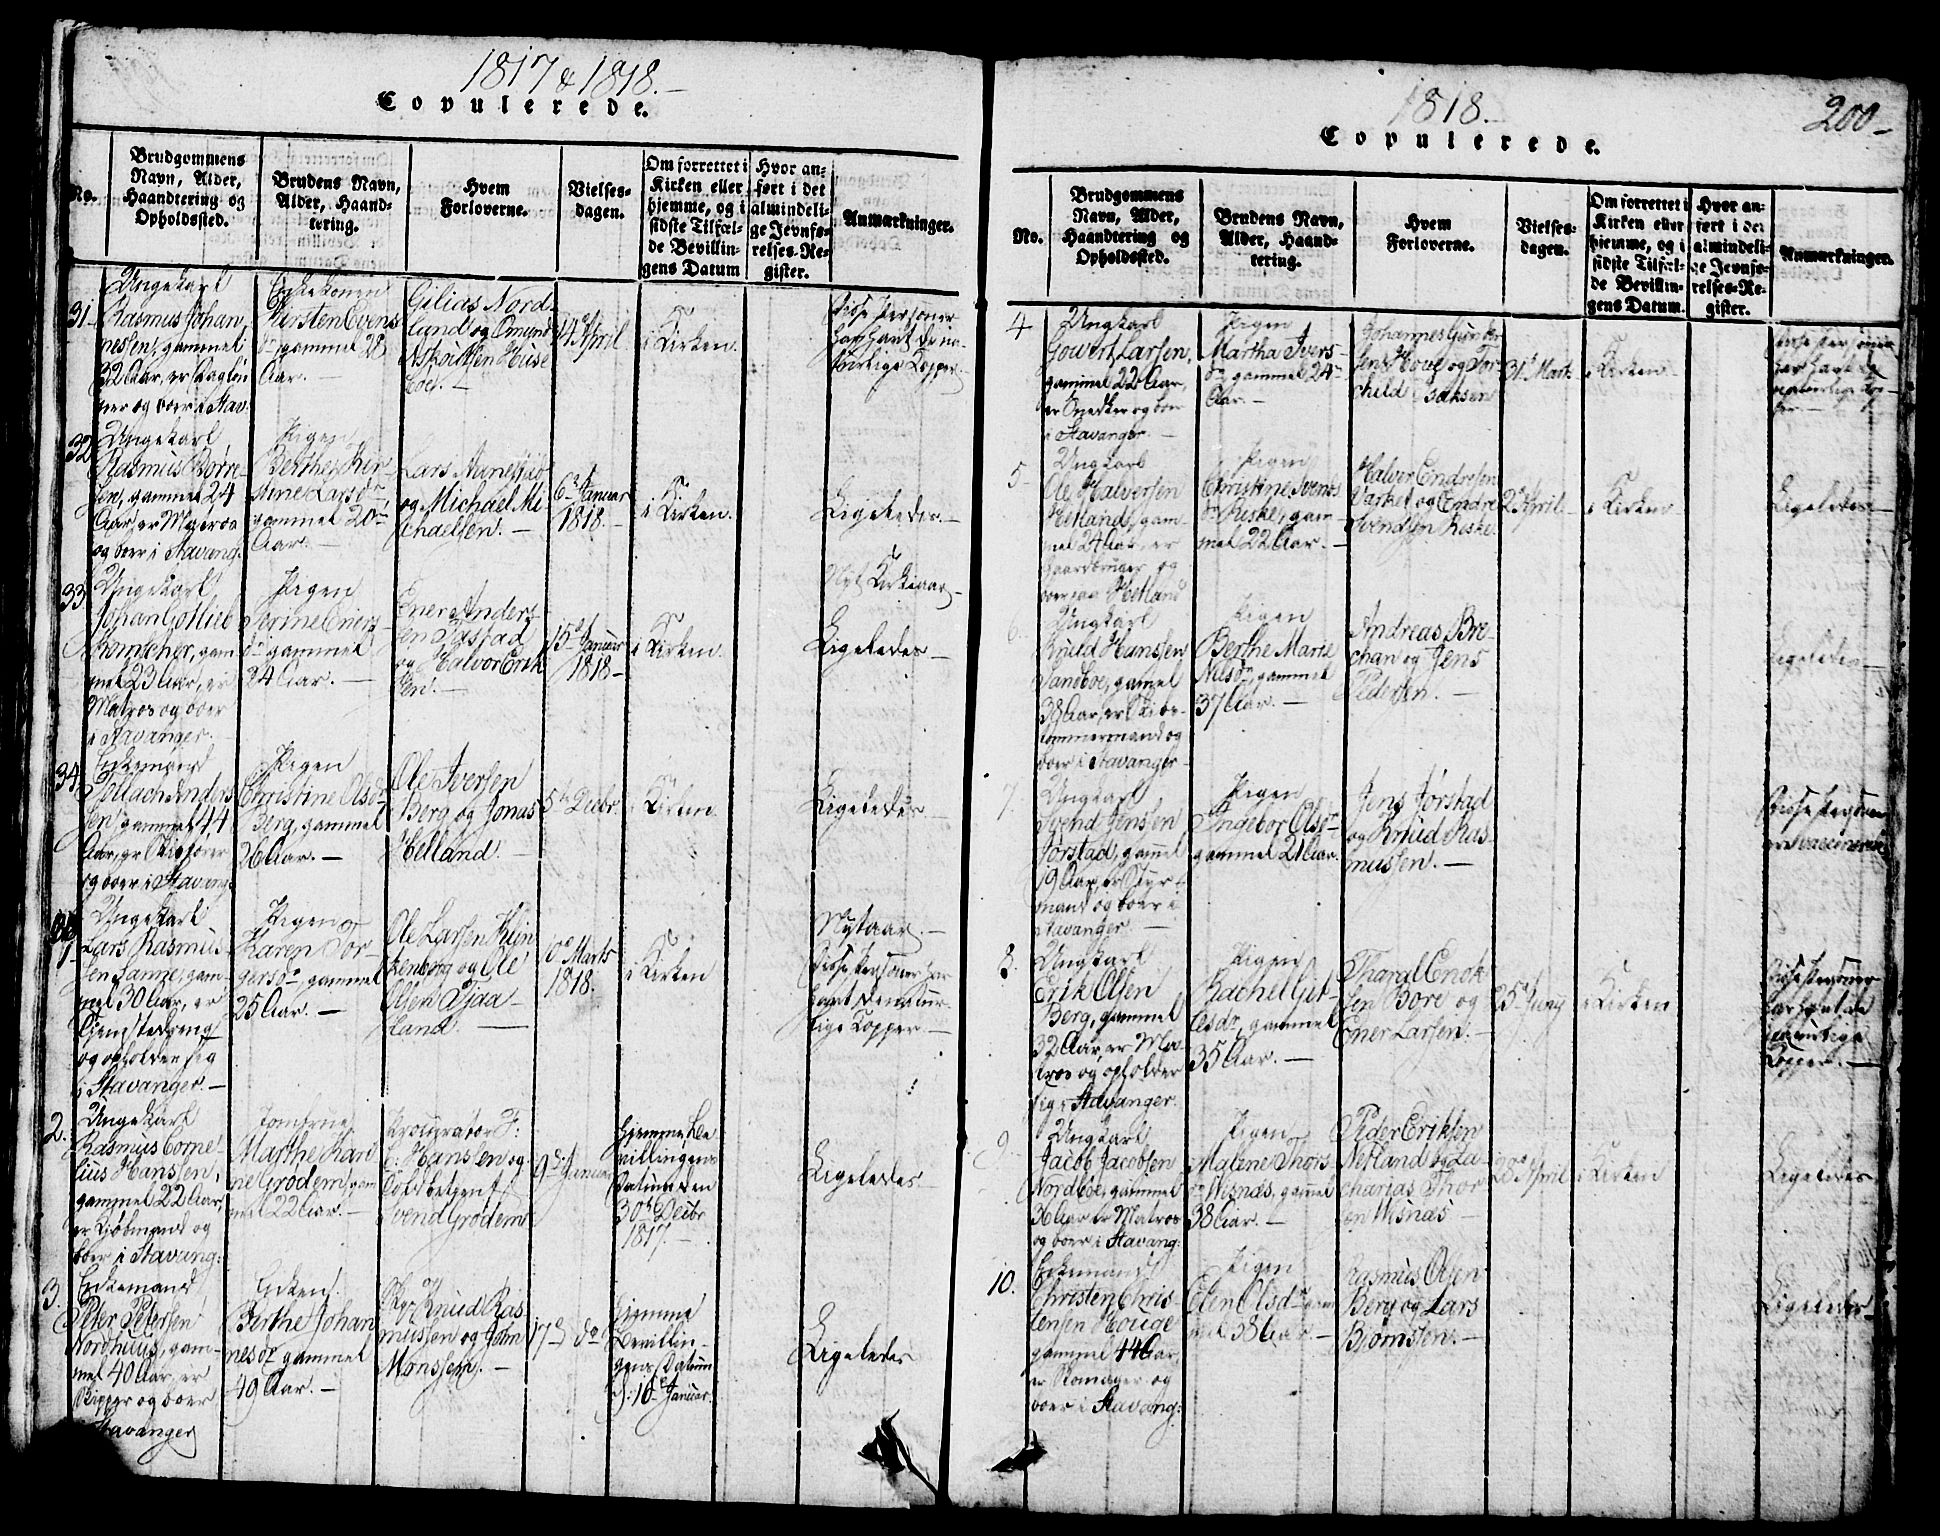 1817 & 1818.
Copulerede.
No.
Brudgommens
Navn, Alder,
Haandtering og
Opholdssted.
Brudens Navn,
Alder, Haand-
tering.
Hvem
Forloverne.
Vielses-
dagen.
Om forrettet i
Kirken eller
hjemme, og i
sidste Tilfæl-
de Bevillin-
gens Datum
Hvor an-
ført i det
almindeli-
ge Jevnfø-
relses-Re-
gister.
Anmærkninger.
31.
Ungekarl
Rasmus Johan-
nesen, gammel
32 Aar, er
og boer i Stav:
Enkekonen
Kirsten Evens-
dr gammel 28
Aar. —
Gilias Nord-
lund og Omund
Huse
boe. —
14de April
i Kirken.
Disse Personer
har havt de na-
turlige Kopper.
32
Ungekarl
Rasmus Børre-
sen, gammel 24
Aar, er Matros
og boer i Stavang:
Pigen
Berthe Kir-
stine Larsdr
gammel 20
Aar. —
Lars
og Michael Mi-
chaelsen. —
6te Januar
1818. —
i Kirken.
Ligeledes —
Nyt Kirkeaar —
33.
Ungekarl
Johan Gotlieb
gam-
mel 23 Aar, er
Matros og boer
i Stavanger.
Pigen
Serine Eners-
dr gammel
24 Aar. —
Ener Anders-
sen Tastad
og Halvor Erik-
sen. —
15de Januar
1818 —
i Kirken.
Ligeledes —
34.
Enkemand
Tollach Anders-
sen, gammel 44
Aar, er Skipfører
og boer i Stavang:
Pigen
Christine Olsdr
Berg, gammel
26 Aar. —
Ole Iversen
Berg og Jonas
Helland. —
5te Decbr
i Kirken
Ligeledes. —
1.
Ungekarl
Lars Rasmus-
sen Janne, gam-
mel 30 Aar, er
Tjenstedreng
og opholder sig
i Stavanger. —
Pigen
Karen Tor-
gersdr, gammel
25 Aar. —
Ole Larsen Klin-
kenberg og Ole
Olsen Gjaa-
land. —
10de Marts
1818.
i Kirken
Nytaar. —
Disse Personer har
havt de natur-
lige Kopper. —
2.
Ungekarl
Rasmus Corne-
lius Hanssen,
gammel 22 Aar,
er Kjøbmand og
boer i Stavang:
Jomfrue
Marthe Kari-
ne Grødem, gam-
mel 22 Aar. —
Procurator
Hanssen og
Toldbetjent
Svend Grødem
9de Januar
Hjemme, Be-
villingens
Datum den
30te Decbr
1817. —
Ligeledes —
3.
Enkemand
Peter Petersen
Nordhuus, gam-
mel 40 Aar, er
Skipper og boer
i Stavanger
Enken
Berthe Johan-
nesdr gammel
49 Aar. —
Knud Ras-
mussen og John
Mønssen. —
17de do
Hjemme
Bevillin-
gens Datum
d: 10de Januar.
Ligeledes
1818.
200 —
Copulerede.
No.
Brudgommens
Navn, Alder,
Haandtering og
Opholdssted.
Brudens Navn,
Alder, Haand-
tering.
Hvem
Forloverne.
Vielses-
dagen.
Om forrettet i
Kirken eller
hjemme, og i
sidste Tilfæl-
de Bevillin-
gens Datum.
Hvor an-
ført i det
almindeli-
ge Jevnfø-
relses-Re-
gister.
Anmærkninger.
4
Ungkarl
Gowert Larsen,
gammel 22 Aar,
er Snedker og boer
i Stavanger. —
Pigen
Martha Ivers-
dr gammel 24
Aar. —
Johannes Gunder-
sen Hove og Tor-
child Isaksen
31te Marts
i Kirken
Disse Personer
har havt de
naturlige Kop-
per. —
5
Ungkarl
Ole Halversen
Hetland, gam-
mel 24 Aar, er
gaardbruger og
boer paa Hetland
Pigen
Christine Svens-
dr Riske, gam-
mel 22 Aar. —
Halver Endresen
og Endre
Svendsen Riske
2de April —
i Kirken
Ligeledes —
6.
Ungkarl
Knud Hanssen
Sandboe, gamel
38 Aar, er Skibs-
tømmermand og
boer i Stavanger
Pigen
Berthe Marie
Nilsdr, gammel
37 Aar. —
Andreas Bro-
chan og Jens
Pedersen. —
Ligeledes —
7.
Ungkarl
Svend Jensen
Jørstad, gamel
19 Aar, er Styr-
mand og boer i
Stavanger. —
Pigen
Ingebor Olsdr
gammel 21 Aar.
Jens Jørstad
og Knud Ras-
mussen. —
Disse Personer
ere vaccinerede
8.
Ungkarl
Erik Olsen
Berg, gammel
32 Aar, er Ma-
tros og opholder
sig i Stavanger.
Pigen
Rachel Git-
lesdr, gammel
35 Aar. —
Tharal Enok-
sen Bore og
Ener Larsen. —
25de Juny
i Kirken
Disse Personer
har havt de
naturlige
Kopper. —
9.
Ungkarl
Jacob Jacobsen
Nordboe, gammel
36 Aar er Matros
og boer i Stavang:
Pigen
Malene Thors-
dr Wisnæs, gamel
38 Aar. —
Peder Eriksen
Netland og Za-
charias Thor-
sen Wisnæs —
28de April
i Kirken
Ligeledes
10.
Enkemand
Christen Chris-
tensen Houge
gammel 44 Aar,
er Skomager og
boer i Stavang:
Pigen
Elen Olsdr gam-
mel 38 Aar —
Rasmus Olsen
Berg og Lars
Bjørnsen. —
Ligeledes —